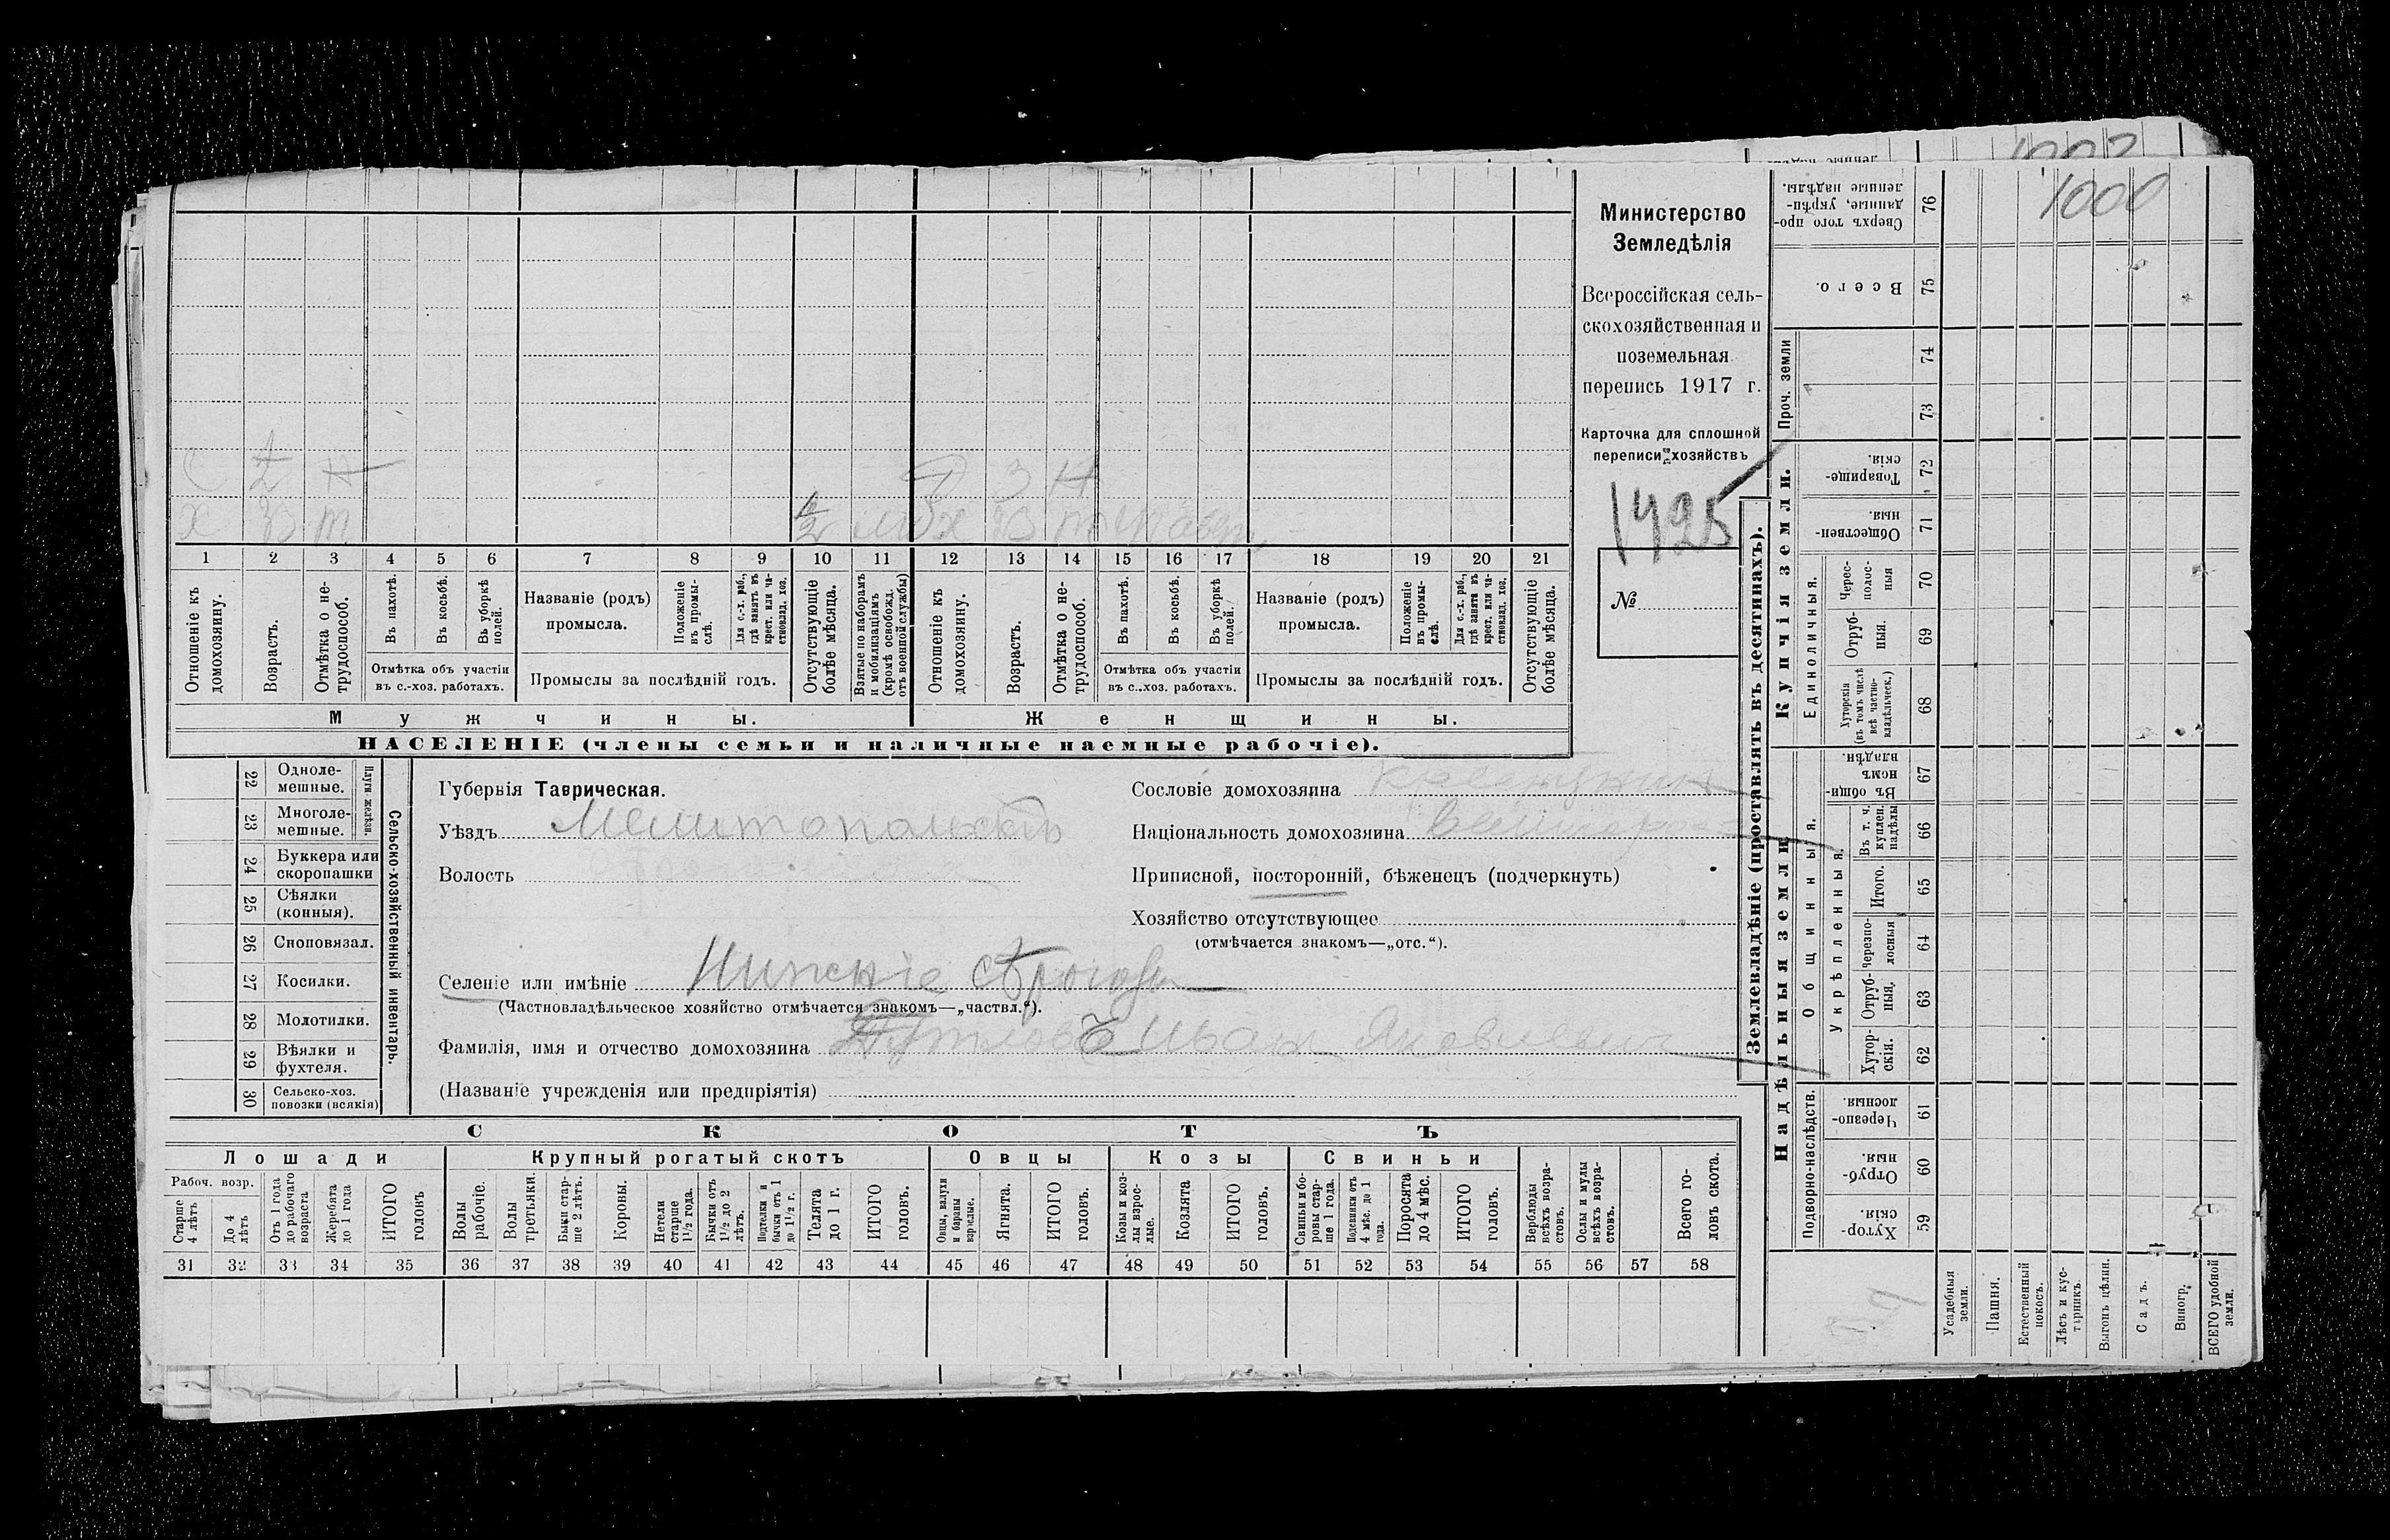 1000
Министерство
Земледѣлія
Всероссійская сель-
скохозяйственная и
поземельная
перепись 1917 г.
Карточка для сплошной
переписи хозяйствъ
1425
№
С 2 Н
3 Н
1 2 3 4 5 6 7 8 9 10 11 12 13 14 15 16 17 18 19 20 21
Отношеніе къ домохозяину.
Возрастъ.
Отмѣтка о не-трудоспособ.
Въ пахотѣ.
Въ косьбѣ.
Въ уборкѣ полей.
Отмѣтка объ участіи
въ с.-хоз. работахъ.
Названіе (родъ)
промысла.
Положеніе въ промы-слѣ.
Для с.-х. раб., гдѣ занятъ въ крест. или ча-стновлад. хоз.
Промыслы за послѣдній годъ.
Отсутствующіе болѣе мѣсяца.
Взятые по наборамъ и мобилизаціямъ (кромѣ освобожд. отъ военной службы)
Отношеніе къ домохозяину.
Возрастъ.
Отмѣтка о не-трудоспособ.
Въ пахотѣ.
Въ косьбѣ.
Въ уборкѣ полей.
Отмѣтка объ участіи
въ с.-хоз. работахъ.
Названіе (родъ)
промысла.
Положеніе въ промы-слѣ.
Для с.-х. раб., гдѣ занята въ крест. или ча-стновлад. хоз.
Промыслы за послѣдній годъ.
Отсутствующіе болѣе мѣсяца.
Мужчины. Женщины.
НАСЕЛЕНІЕ (члены семьи и наличные наемные рабочіе).
22 Одноле-мешные.
23 Многоле-мешные.
Плуги желѣзн.
24 Буккера или скоропашки
25 Сѣялки (конныя).
26 Сноповязал.
27 Косилки.
28 Молотилки.
29 Вѣялки и фухтеля.
30 Сельско-хоз. повозки (всякія)
Сельско-хозяйственный инвентарь.
Губернія Таврическая.
Уѣздъ Мелитопольскій
Волость
Селеніе или имѣніе Нижніе Сѣрогозы
(Частновладѣльческое хозяйство отмѣчается знакомъ—„частвл.“).
Фамилія, имя и отчество домохозяина Иванъ Яковлевичъ
(Названіе учрежденія или предпріятія)
Сословіе домохозяина крестьянинъ
Національность домохозяина великоросъ
Приписной, посторонній, бѣженецъ (подчеркнуть)
Хозяйство отсутствующее
(отмѣчается знакомъ—„отс.“).
СКОТЪ
Лошади Крупный рогатый скотъ Овцы Козы Свиньи
Рабоч. возр.
Старше 4 лѣтъ
До 4 лѣтъ
Отъ 1 года до рабочаго возраста
Жеребята до 1 года
ИТОГО головъ
Волы рабочіе.
Волы третьяки.
Быки стар-ше 2 лѣтъ.
Коровы.
Нетели старше 1½ года.
Бычки отъ 1½ до 2 лѣтъ.
Подтелки и бычки отъ 1 до 1½ г.
Телята до 1 г.
ИТОГО головъ.
Овцы, валухи и бараны взрослые.
Ягнята.
ИТОГО головъ.
Козы и коз-лы взрос-лые.
Козлята
ИТОГО головъ.
Свиньи и бо-ровы стар-ше 1 года.
Подсвинки отъ 4 мѣс. до 1 года.
Поросята до 4 мѣс.
ИТОГО головъ.
Верблюды всѣхъ возра-стовъ.
Ослы и мулы всѣхъ возра-стовъ.
Всего го-ловъ скота.
31 32 33 34 35 36 37 38 39 40 41 42 43 44 45 46 47 48 49 50 51 52 53 54 55 56 57 58
Землевладѣніе (проставлять въ десятинахъ).
Надѣльныя земли
Купчія земли.
Проч. земли
Подворно-наслѣдств.
Общинныя.
Укрѣпленныя.
Единоличныя.
Сверхъ того про-данные, укрѣп-ленные надѣлы. 76
Всего. 75
74
73
Товарище-скія. 72
Обществен-ныя. 71
Черес-полос-ныя 70
Отруб-ныя. 69
Хуторскія (въ томъ числѣ всѣ частно-владѣльческ.) 68
Въ общи-номъ владѣн. 67
Въ т. ч. куплен. надѣлы 66
Итого. 65
Черезпо-лосныя 64
Отруб-ныя. 63
Хутор-скія. 62
Черезпо-лосныя. 61
Отруб-ныя. 60
Хутор-скія. 59
Усадебныя земли.
Пашня.
Естественный покосъ.
Лѣсъ и кус-тарникъ.
Выгонъ цѣлин.
Садъ.
Виногр.
ВСЕГО удобной земли.